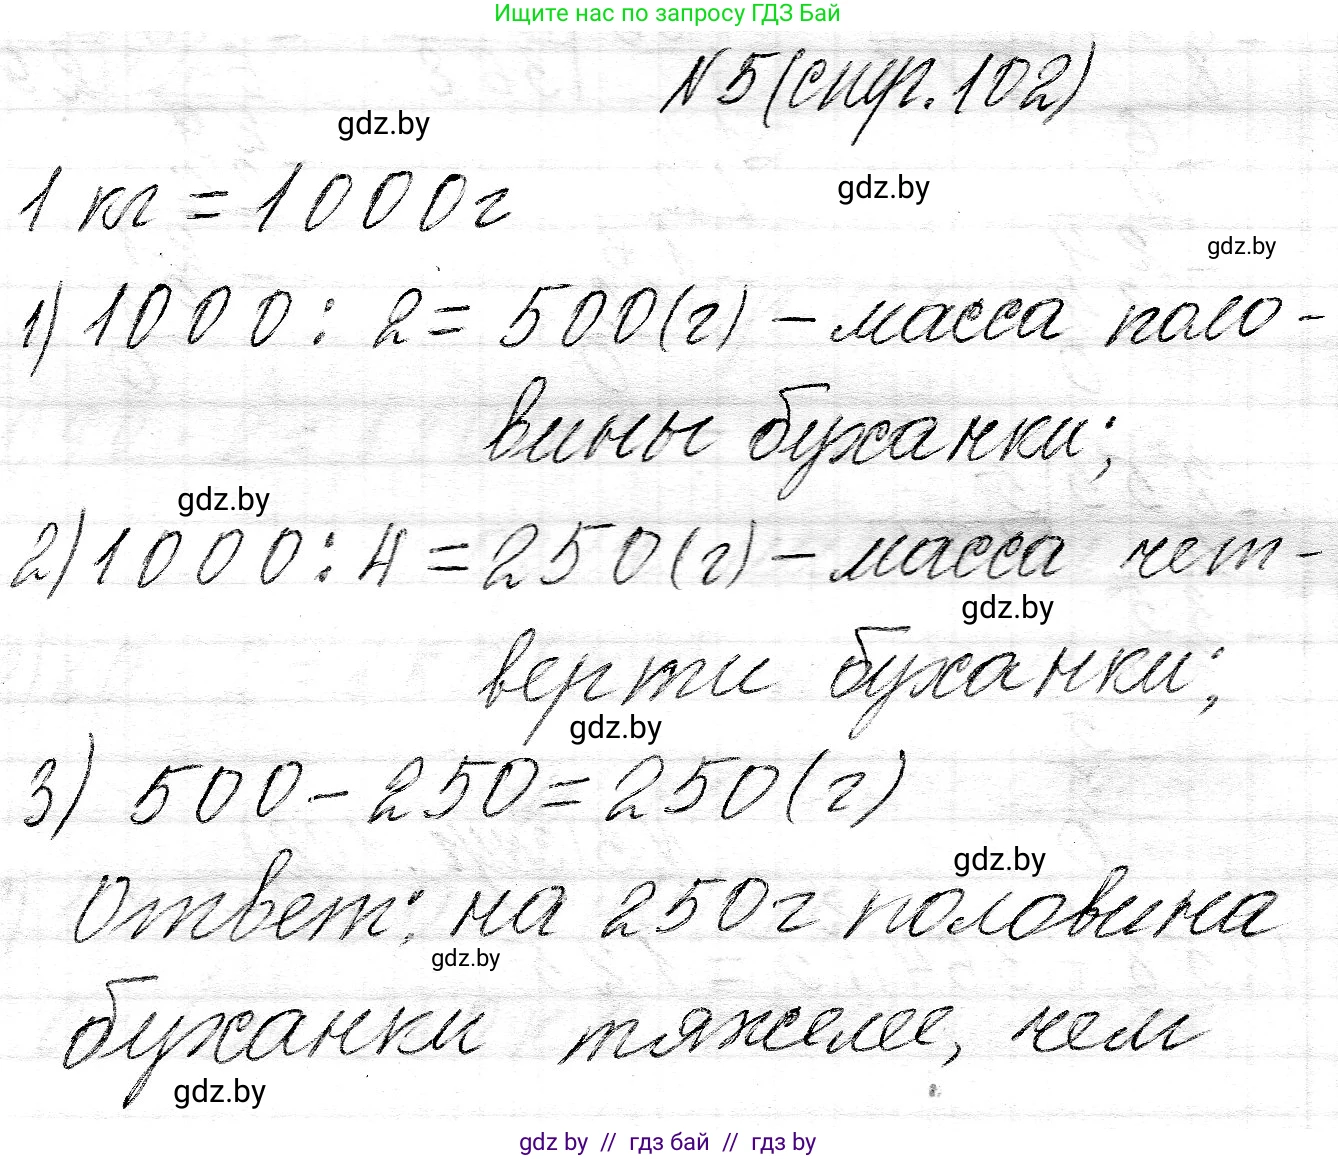 Ищите нас по запросу ГДЗ Бай
N 5 (стр. 102)
gdz.by
1 кг = 1000 г
gdz.by
gdz.by
1) 1000 : 2 = 500 (г) – масса поло-
вины буханки;
gdz.by
2) 1000 : 4 = 250 (г) – масса чет-
gdz.by
верти буханки;
gdz.by
3) 500 – 250 = 250 (г)
gdz.by
Ответ: на 250 г половина
gdz.by
буханки тяжелее, чем
gdz.by
gdz by // гдз бай // гдз by